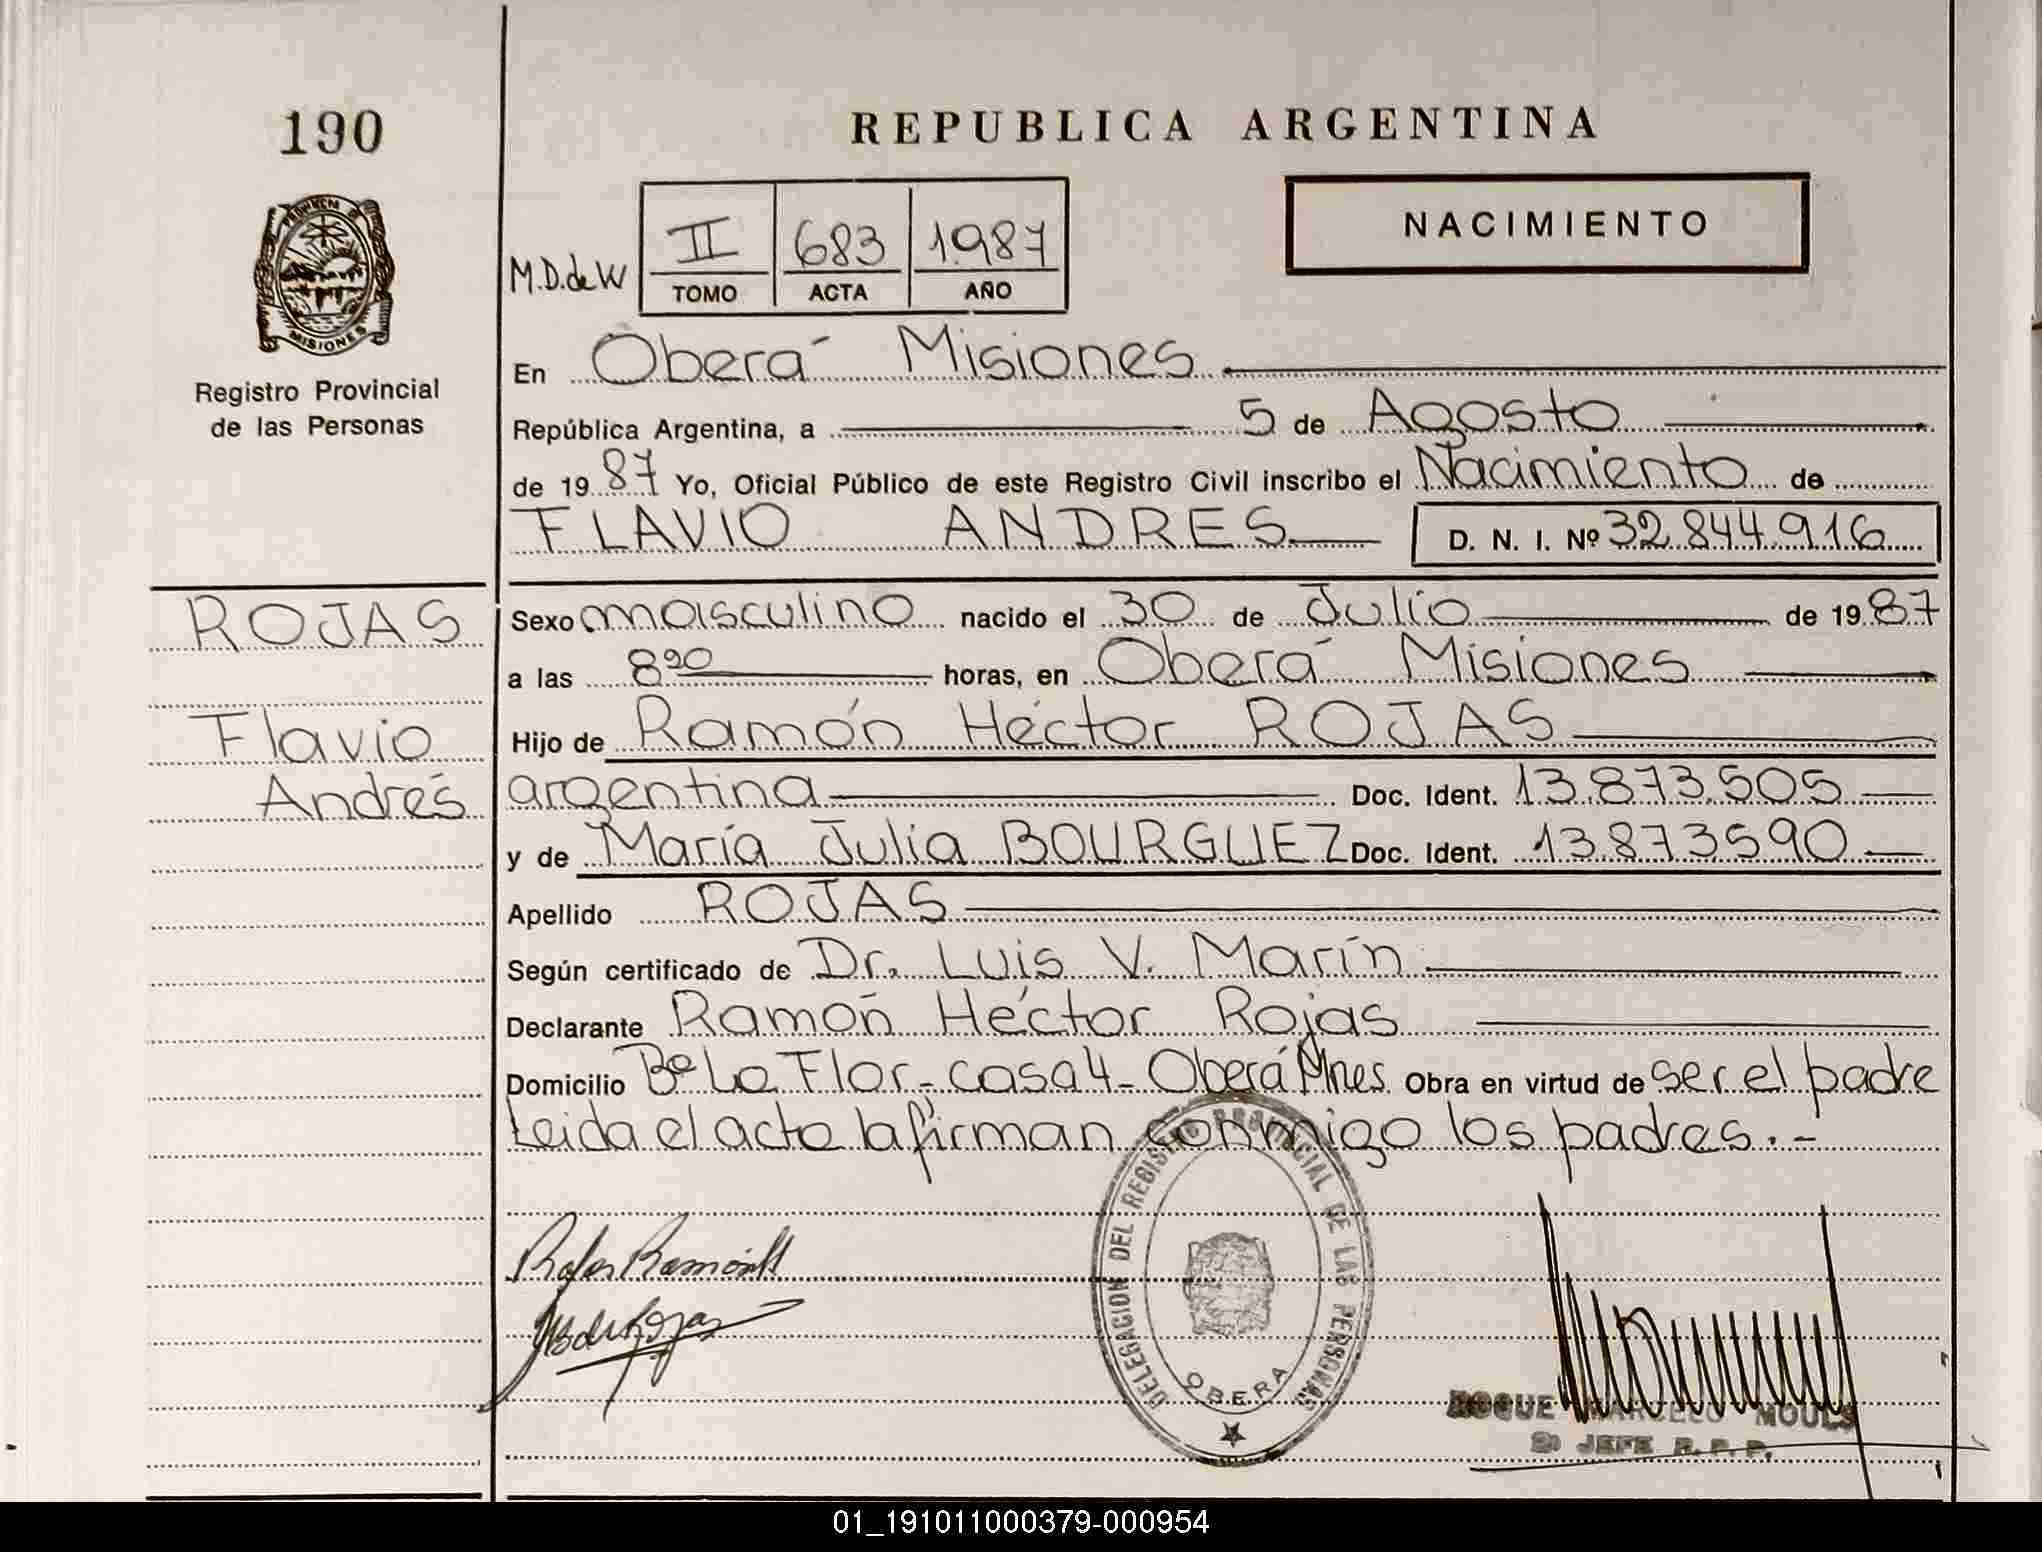 190
REPUBLICA ARGENTINA
PROVINCIA DE
MISIONES
Registro Provincial
de las Personas
M.D.de W
II 683 1.987
TOMO ACTA AÑO
NACIMIENTO
En Oberá Misiones
República Argentina, a 5 de Agosto
de 19 87 Yo, Oficial Público de este Registro Civil inscribo el Nacimiento de
FLAVIO ANDRES D. N. I. Nº 32.844.916
ROJAS
Flavio
Andrés
Sexo masculino nacido el 30 de Julio de 19 87
a las horas, en Oberá Misiones
Hijo de Ramón Héctor ROJAS
argentina Doc. Ident. 13.873.505
y de María Julia BOURGUEZ Doc. Ident. 13.873590
Apellido ROJAS
Según certificado de Dr. Luis V. Marín
Declarante Ramón Héctor Rojas
Domicilio Bº La Flor - casa 4 - Oberá Mnes. Obra en virtud de ser el padre
Leida el acta la firman conmigo los padres. -
DELEGACION DEL REGISTRO PROVINCIAL DE LAS PERSONAS
OBERA
ROQUE MARCELO
JEFE R. P. P.
01_191011000379-000954